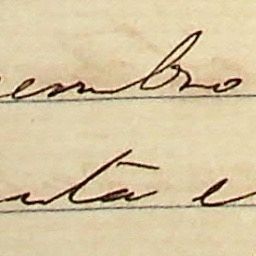 embro
nta e